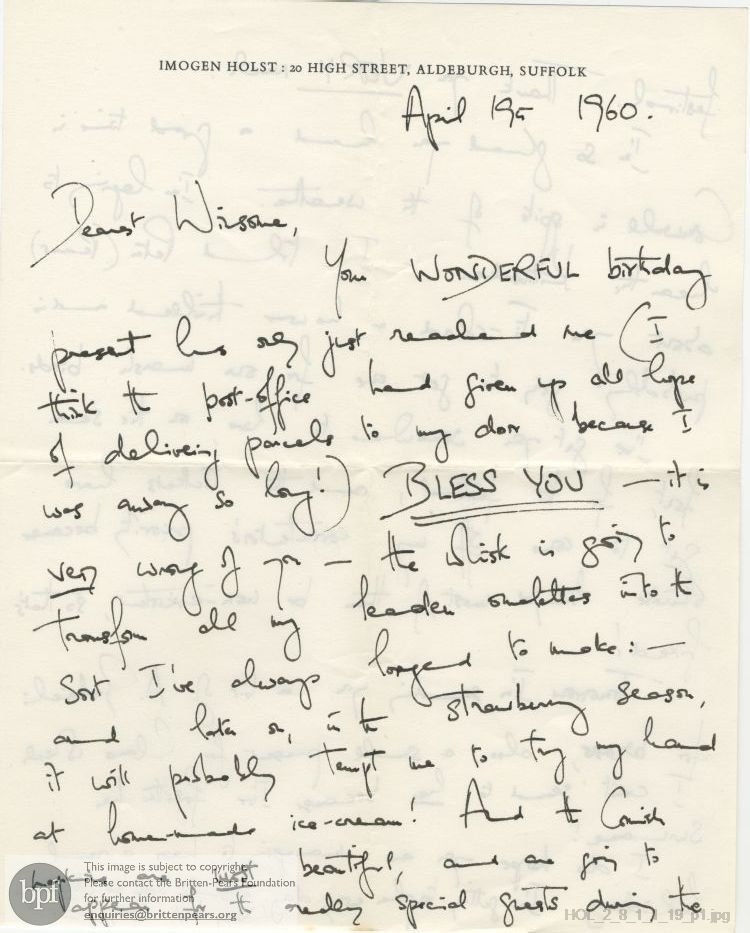 IMOGEN HOLST : 20 HIGH STREET, ALDEBURGH, SUFFOLK
April 19th 1960.
Dearest Winsome,
Your WONDERFUL birthday
present has only just reached me (I
think the post-office had given up all hope
of delivering parcels to my door because I
was away so long!) BLESS YOU — it is
very wrong of you — the whisk is going to
transform all my leaden omelettes into the
sort I've always longed to make: —
and later on, in the strawberry season,
it will probably tempt me to try my hand
at home-made ice-cream! And the Cornish
are just beautiful, and are going to
appear for the really special guests during the
bpf
This image is subject to copyright
Please contact the Britten-Pears Foundation
for further information
enquiries@brittenpears.org
HOL_2_8_1_1_19_p1.jpg